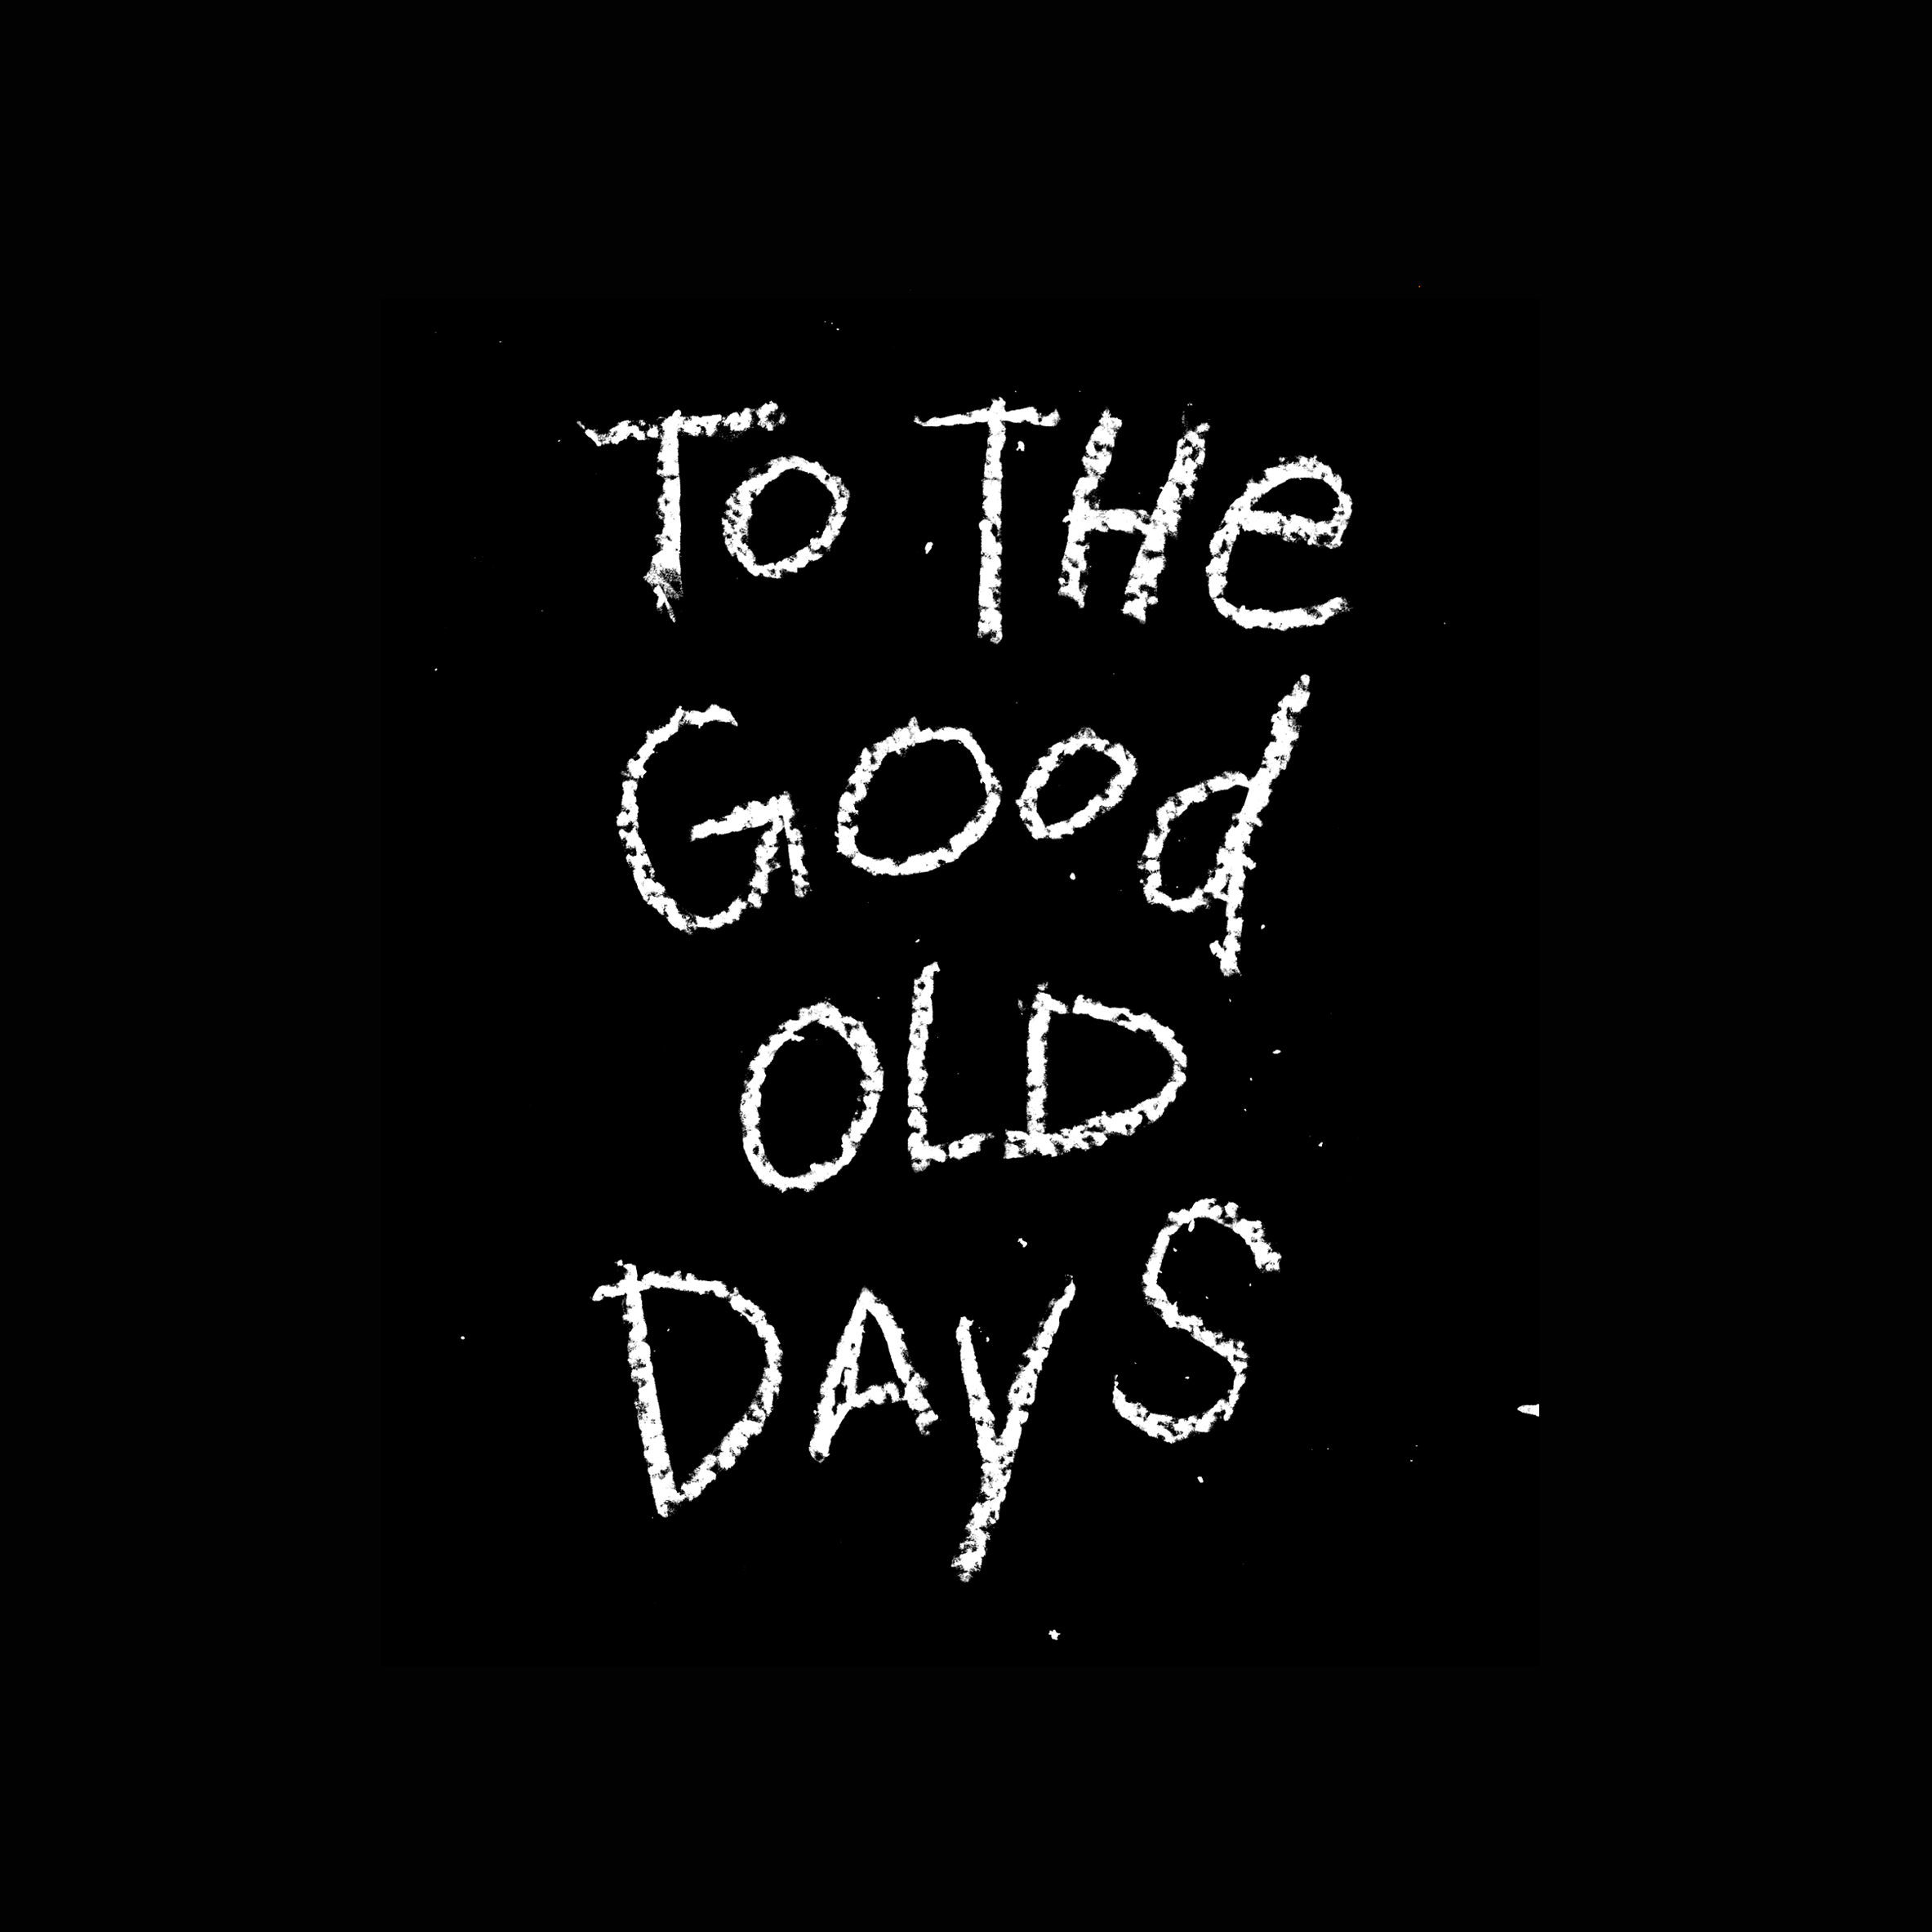 To THe
Good
OLD
DAyS